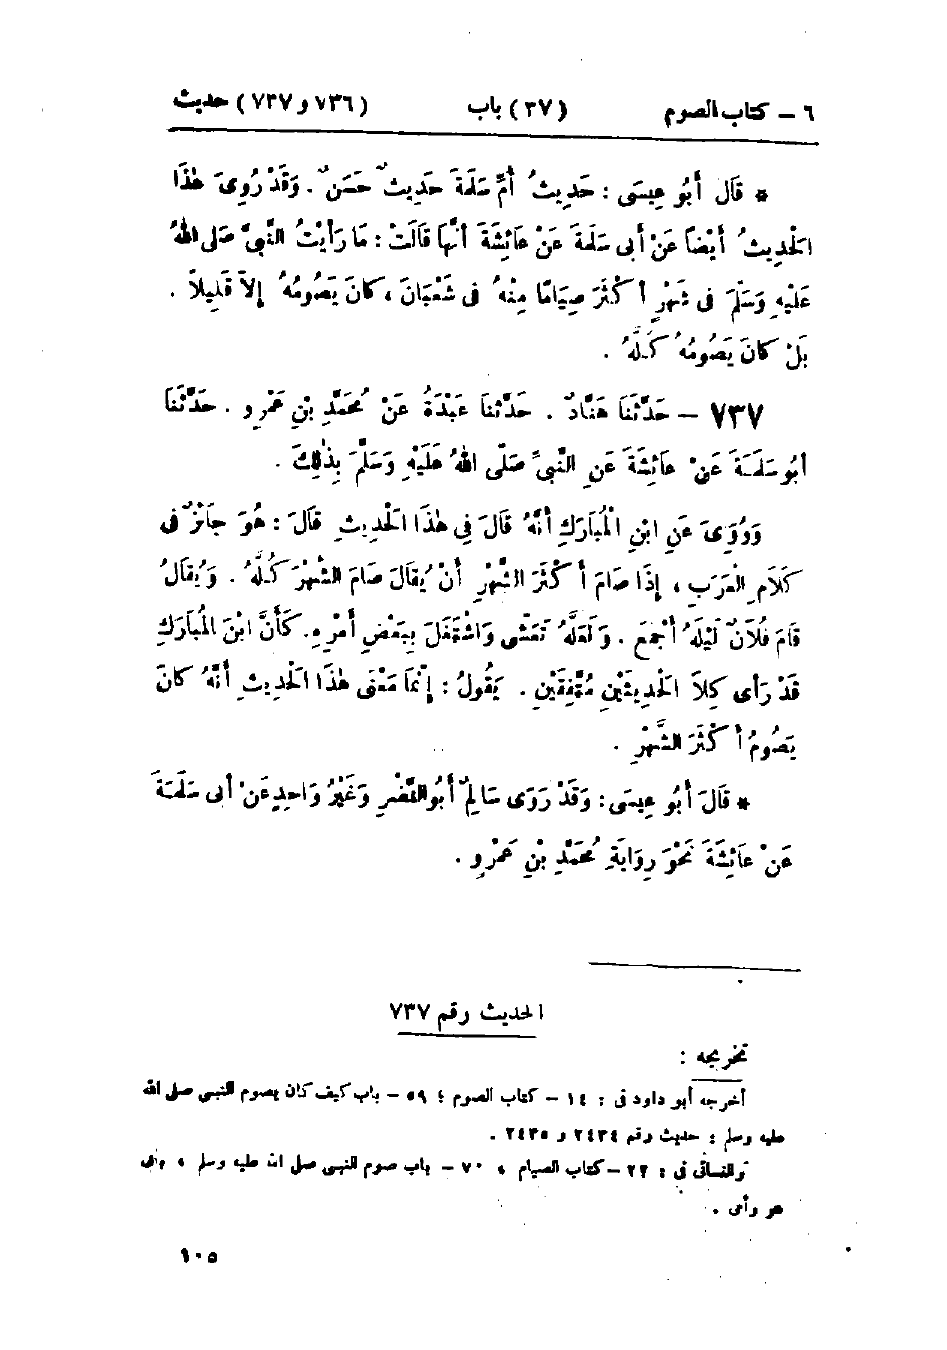 ٦ – كتاب الصوم (٣٧) باب (٧٣٦ و ٧٣٧) حديث
* قَالَ أَبُو عِيسَى : حَدِيثُ أُمِّ سَلَمَةَ حَدِيثٌ حَسَنٌ . وَقَدْ رُوِىَ هٰذَا
الْحَدِيثُ أَيْضاً عَنْ أَبِى سَلَمَةَ عَنْ عَائِشَةَ أَنَّهَا قَالَتْ : مَا رَأَيْتُ النَّبِىَّ صَلى اللهُ
عَلَيْهِ وَسَلَّمَ فى شَهْرٍ أَكْثَرَ صِيَامًا مِنْهُ فى شَعْبَانَ ، كَانَ يَصُومُهُ إلاَّ قَلِيلاً .
بَلْ كَانَ يَصُومُهُ كُلَّهُ .
٧٣٧ – حَدَّثَنَا هَنَّادٌ . حَدَّثَنَا عَبْدَةُ عَنْ مُحَمَّدِ بْنِ عَمْرٍو . حَدَّثَنَا
أَبُو سَلَمَةَ عَنْ عَائِشَةَ عَنِ النَّبِىِّ صَلّى اللهُ عَلَيْهِ وَسَلَّمَ بِذٰلِكَ .
وَرُوِىَ عَنِ ابْنِ الْمُبَارَكِ أَنَّهُ قَالَ فِى هٰذَا الْحَدِيثِ قَالَ : هُوَ جَائِزٌ فى
كَلَامِ الْعَرَبِ ، إِذَا صَامَ أَكْثَرَ الشَّهْرِ أَنْ يُقَالَ صَامَ الشَّهْرَ كُلَّهُ . وَيُقَالُ
قَامَ فُلَانٌ لَيْلَهُ أَجْمَعَ . وَلَعَلَّهُ تَعَشّى وَاشْتَغَلَ بِبَعْضِ أَمْرِهِ. كَأَنَّ ابْنَ الْمُبَارَكِ
قَدْ رَأَى كِلَا الْحَدِيثَيْنِ مُتَّفِقَيْنِ . يَقُولُ : إِنَّمَا مَعْنَى هٰذَا الْحَدِيثِ أَنَّهُ كَانَ
يَصُومُ أَكْثَرَ الشَّهْرِ .
* قَالَ أَبُو عِيسَى : وَقَدْ رَوَى سَالِمٌ أَبُو النَّضْرِ وَغَيْرُ وَاحِدٍ عَنْ أَبِى سَلَمَةَ
عَنْ عَائِشَةَ نَحْوَ رِوَايَةِ مُحَمَّدِ بْنِ عَمْرٍو .
الحديث رقم ٧٣٧
تخريجه :
أخرجه أبو داود فى : ١٤ – كتاب الصوم ؛ ٥٩ – باب كيف كان يصوم النبى صلى الله
عليه وسلم : حديث رقم ٢٤٣٤ و ٢٤٣٥ .
والنسائى فى : ٢٢ – كتاب الصيام ، ٧٠ – باب صوم النبى صلى الله عليه وسلم ، بأبى
هو وأمى .
١٠٥